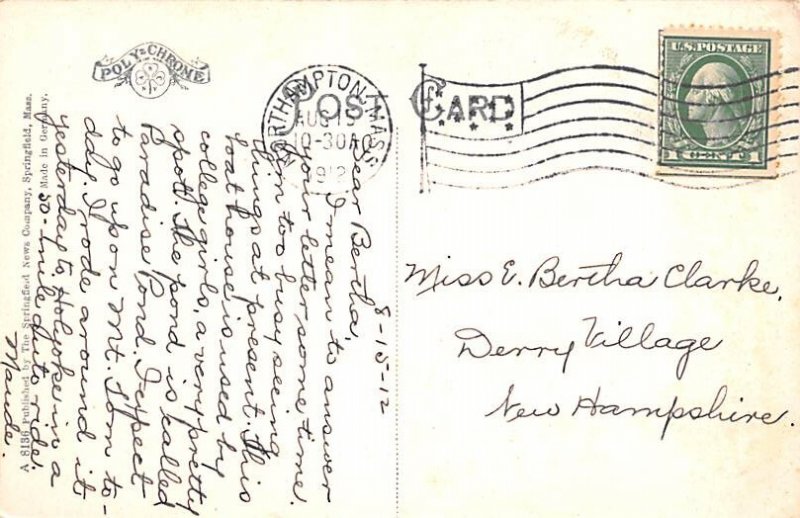 POLY-CHROME
A 8136 Published by The Springfield News Company, Springfield, Mass.
Made in Germany.
POST CARD
NORTHAMPTON, MASS.
AUG 15
10-30A
1912
U.S. POSTAGE
1 CENT 1
8-15-12
Dear Bertha,
I mean to answer
your letter some time.
Am too busy seeing
things at present. This
boat house is used by
college girls, a very pretty
spot. The pond is called
Paradise Pond. I expect
to go upon Mt. Tom to-
day. I rode around it
yesterday to Holyoke in a
30-mile auto ride.
Maude.
Miss E. Bertha Clarke,
Derry Village
New Hampshire.